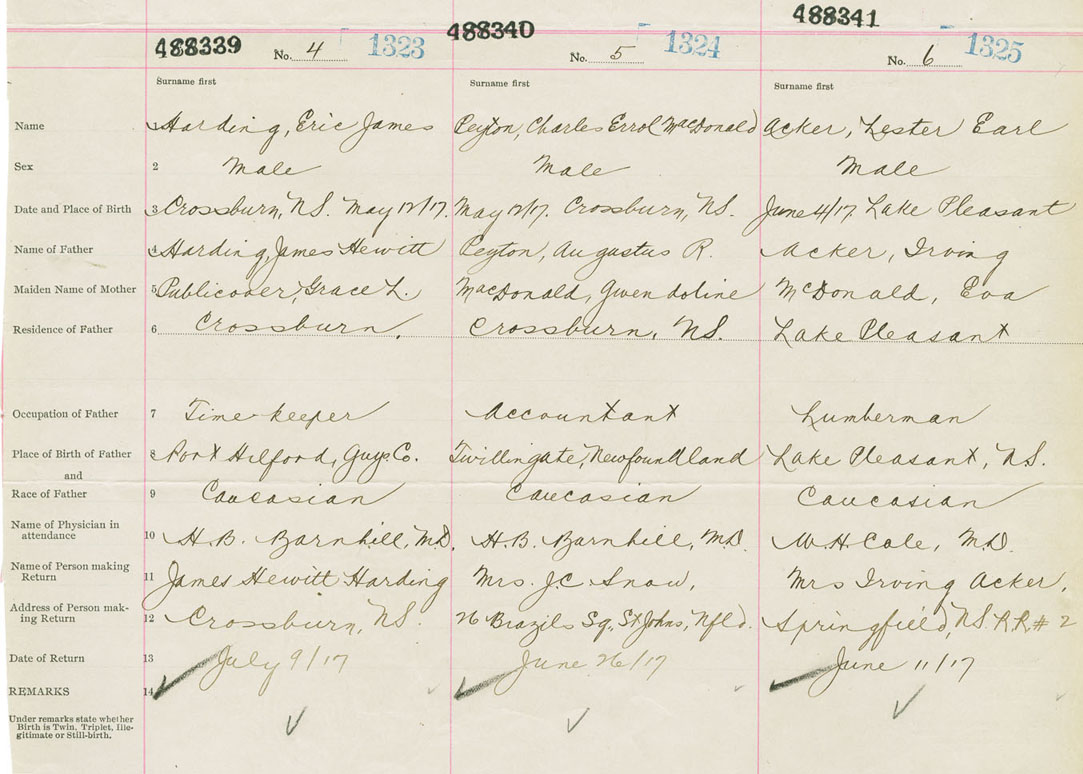 488339 488340 488341
No. 4 1323 No. 5 1324 No. 6 1325
Surname first Surname first Surname first
Name 1 Harding, Eric James Peyton, Charles Errol MacDonald Acker, Lester Earl
Sex 2 Male Male Male
Date and Place of Birth 3 Crossburn, N.S. May 12/17. May 12/17. Crossburn, N.S. June 4/17. Lake Pleasant
Name of Father 4 Harding, James Hewitt Peyton, Augustus R. Acker, Irving
Maiden Name of Mother 5 Publicover, Grace L. MacDonald, Gwendoline McDonald, Eva
Residence of Father 6 Crossburn. Crossburn, N.S. Lake Pleasant
Occupation of Father 7 Time keeper Accountant Lumberman
Place of Birth of Father 8 Port Hilford, Guys Co. Twillingate, Newfoundland Lake Pleasant, N.S.
and
Race of Father 9 Caucasian Caucasian Caucasian
Name of Physician in
attendance 10 H.B. Barnhill, M.D. H.B. Barnhill, M.D. W.H. Cole, M.D.
Name of Person making
Return 11 James Hewitt Harding Mrs. J.C. Snow, Mrs Irving Acker,
Address of Person mak-
ing Return 12 Crossburn, N.S. 26 Brazils Sq., St Johns, Nfld. Springfield, N.S. R.R. # 2
Date of Return 13 July 9/17 June 26/17 June 11/17
REMARKS 14
Under remarks state whether
Birth is Twin, Triplet, Ille-
gitimate or Still-birth.